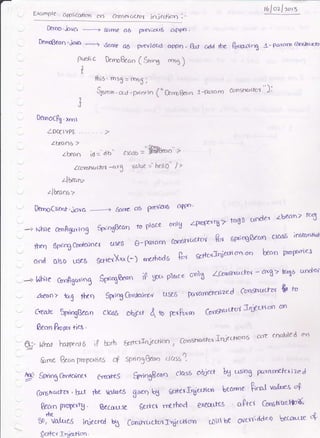 16/02/2015
Example application on constructor injection :-
Demo.java → same as previous appn.
DemoBean.java → same as previous appn. But add the following 1-param constructor
public DemoBean (String msg)
{
this.msg = msg;
System.out.println ("DemoBean 1-param constructor");
}
DemoCfg.xml
<!DOCTYPE . . . . . . . . >
<beans>
<bean id="db" class=" ">
<constructor-arg value="hello" />
</bean>
</beans>
DemoClient.java → same as previous appn.
→ While configuring SpringBean to place only <property> tags under <bean> tag
then SpringContainer uses 0-param constructor for SpringBean class instantiation
and also uses setterXxx(-) methods for setterInjection on bean properties
→ While configuring SpringBean if you place only <constructor-arg> tags under
<bean> tag then SpringContainer uses parameterized constructor to
create SpringBean class object & to perform Constructor Injection on
Bean Properties.
Q: What happens if both SetterInjection, ConstructorInjections are enabled on
same Bean properties of SpringBean class?
Ans: Spring Container creates SpringBean class object by using parameterized
constructor. but the values given by SetterInjection become final values of
Bean property. Because setter method executes after constructor.
So, the values injected by ConstructorInjection will be overridden because of
Setter Injection.